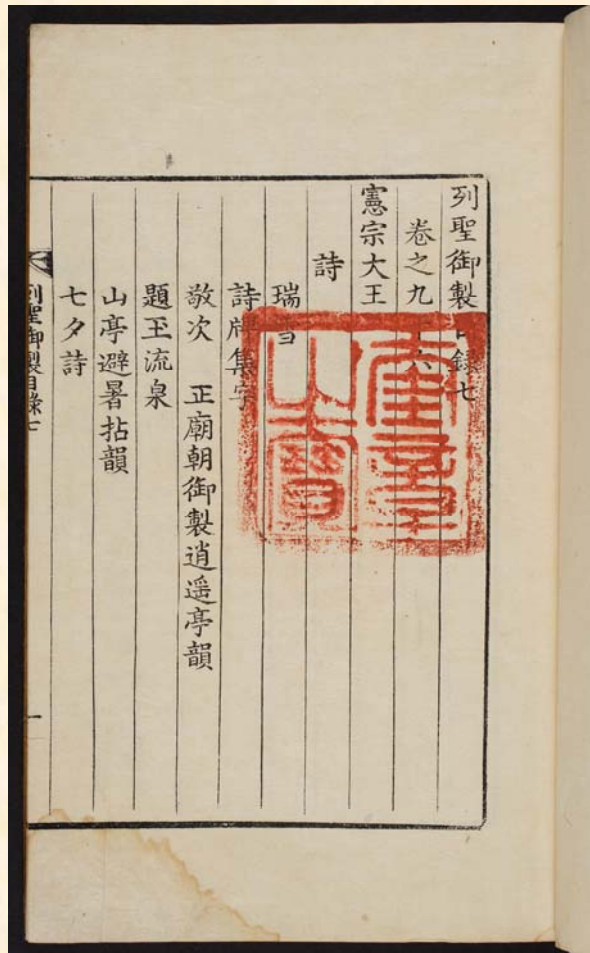 列聖御製目錄七
卷之九十六
憲宗大王
詩
瑞雪
詩牌集字
敬次 正廟朝御製逍遥亭韻
題玉流泉
山亭避暑拈韻
七夕詩
列聖御製目錄七
一
奎章之寶